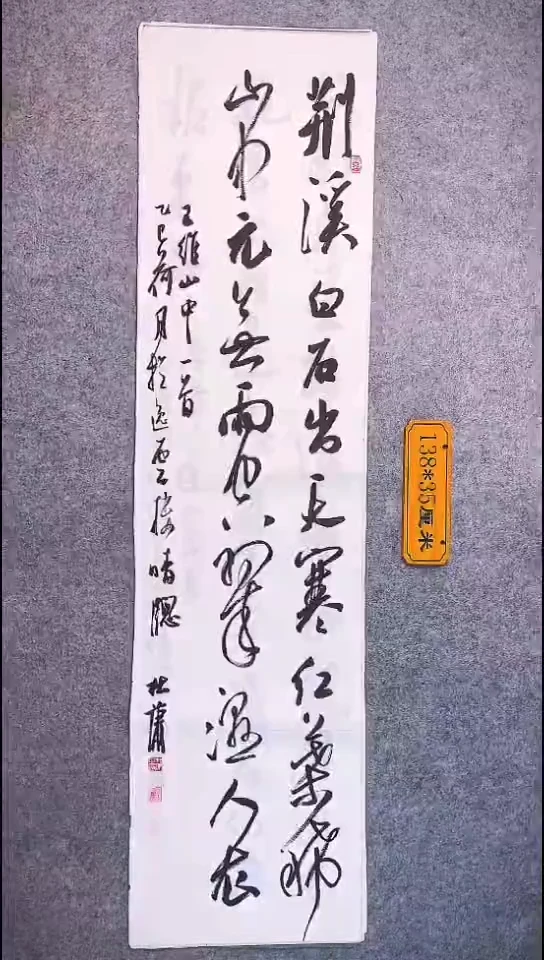 荆溪白石出天寒红葉稀
山中元無雨空翠湿人衣
王维山中一首
乙巳荷月於逸墨楼晴窗
138*35厘米